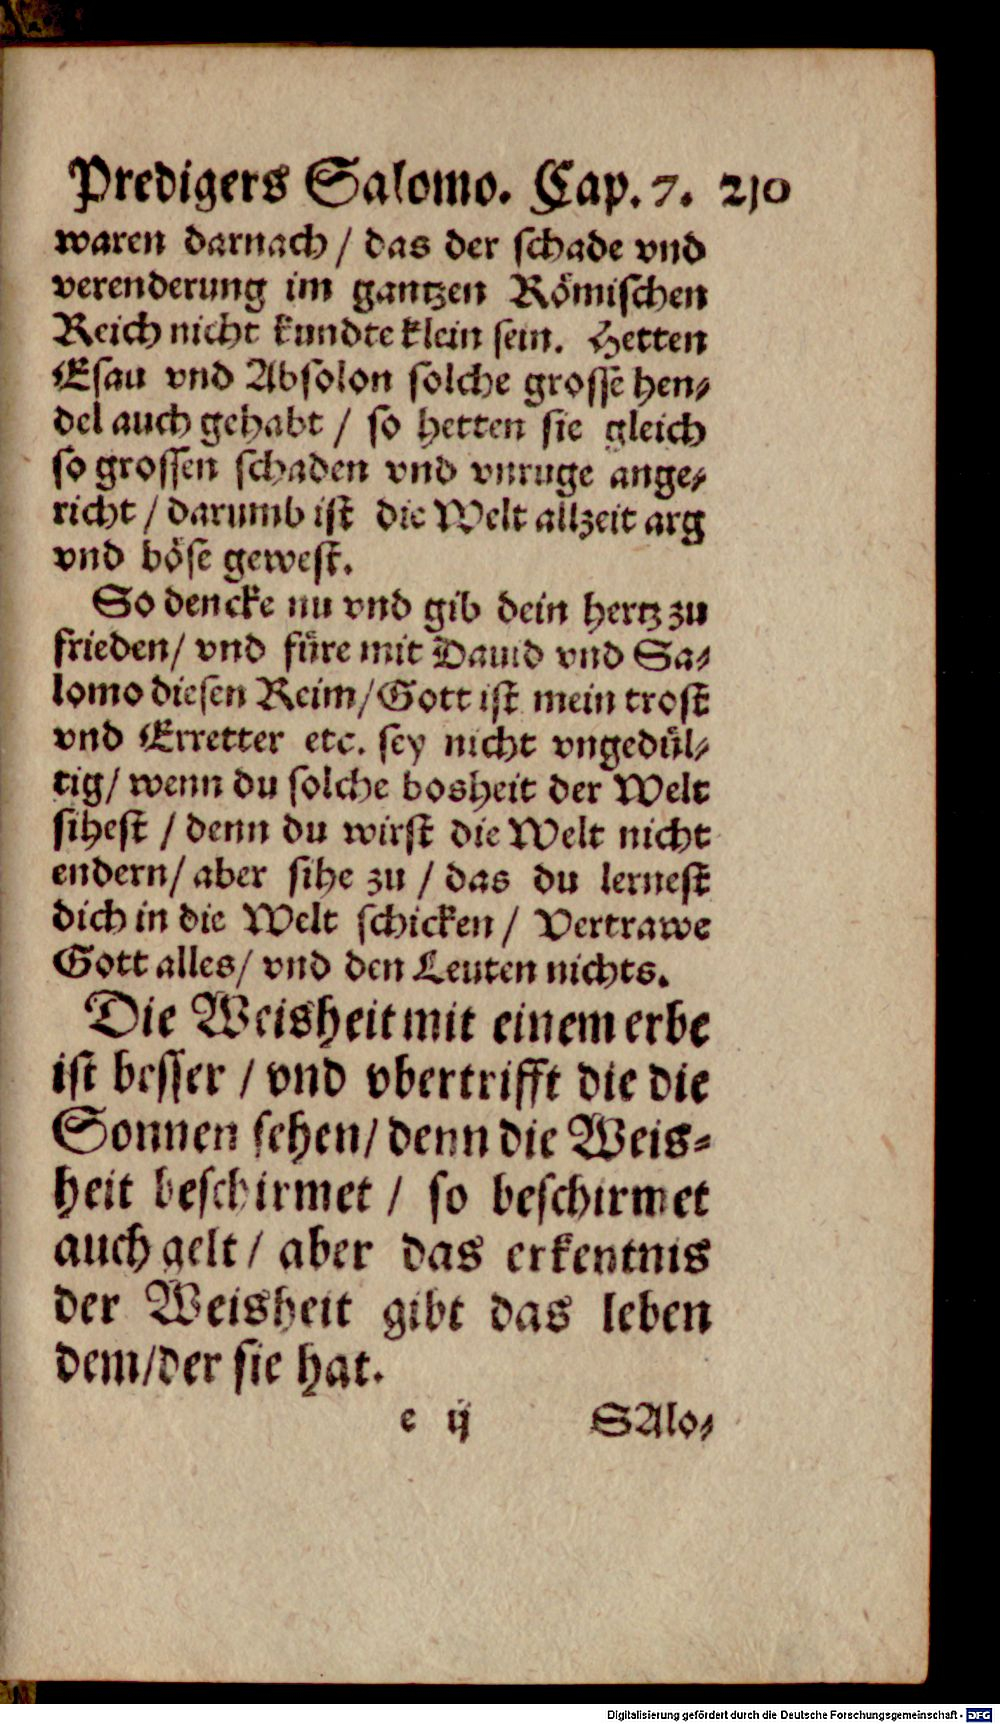 Predigers Salomo. Cap. 7. 210
waren darnach / das der schade vnd
verenderung im gantzen Römischen
Reich nicht kundte klein sein. Hetten
Esau vnd Absolon solche grosse hen-
del auch gehabt / so hetten sie gleich
so grossen schaden vnd vnruge ange-
richt / darumb ist die Welt allzeit arg
vnd böse gewest.
So dencke nu vnd gib dein hertz zu
frieden / vnd füre mit Dauid vnd Sa-
lomo diesen Reim / Gott ist mein trost
vnd Erretter etc. sey nicht vngedül-
tig / wenn du solche bosheit der Welt
sihest / denn du wirst die Welt nicht
endern / aber sihe zu / das du lernest
dich in die Welt schicken / Vertrawe
Gott alles / vnd den Leuten nichts.
Die Weisheit mit einem erbe
ist besser / vnd vbertrifft die die
Sonnen sehen / denn die Weis-
heit beschirmet / so beschirmet
auch gelt / aber das erkentnis
der Weisheit gibt das leben
dem / der sie hat.
e ij SAlo-
Digitalisierung gefördert durch die Deutsche Forschungsgemeinschaft - DFG